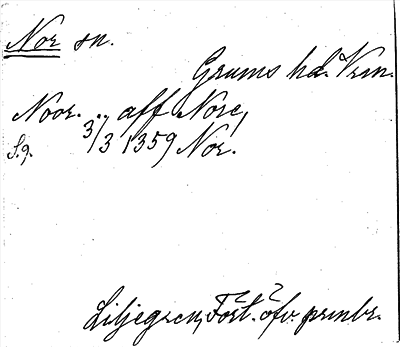 Nor sn.
Grums hd. Vrm.
Noor. .., aff Nore,
S.9. 3/3 1359 Nor.
Liljegren, Fört. öfv. prmbr.